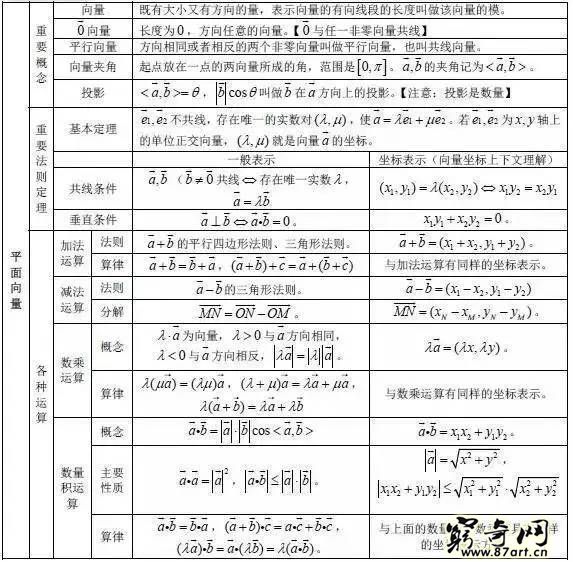 平面向量
重要概念
向量 既有大小又有方向的量，表示向量的有向线段的长度叫做该向量的模。
0⃗向量 长度为0，方向任意的向量。【0⃗与任一非零向量共线】
平行向量 方向相同或者相反的两个非零向量叫做平行向量，也叫共线向量。
向量夹角 起点放在一点的两向量所成的角，范围是[0,π]。a⃗,b⃗的夹角记为<a⃗,b⃗>。
投影 <a⃗,b⃗>=θ，|b⃗|cosθ叫做b⃗在a⃗方向上的投影。【注意：投影是数量】
重要法则定理
基本定理 e⃗₁,e⃗₂不共线，存在唯一的实数对(λ,μ)，使a⃗=λe⃗₁+μe⃗₂。若e⃗₁,e⃗₂为x,y轴上
的单位正交向量，(λ,μ)就是向量a⃗的坐标。
一般表示 坐标表示（向量坐标上下文理解）
共线条件 a⃗,b⃗（b⃗≠0⃗共线⇔存在唯一实数λ，
a⃗=λb⃗ (x₁,y₁)=λ(x₂,y₂)⇔x₁y₂=x₂y₁
垂直条件 a⃗⊥b⃗⇔a⃗•b⃗=0。 x₁y₁+x₂y₂=0。
各种运算
加法运算
法则 a⃗+b⃗的平行四边形法则、三角形法则。 a⃗+b⃗=(x₁+x₂,y₁+y₂)。
算律 a⃗+b⃗=b⃗+a⃗，(a⃗+b⃗)+c⃗=a⃗+(b⃗+c⃗) 与加法运算有同样的坐标表示。
减法运算
法则 a⃗-b⃗的三角形法则。 a⃗-b⃗=(x₁-x₂,y₁-y₂)
分解 MN⃗=ON⃗-OM⃗。 MN⃗=(x_N-x_M,y_N-y_M)。
数乘运算
概念 λ·a⃗为向量，λ>0与a⃗方向相同，
λ<0与a⃗方向相反，|λa⃗|=|λ||a⃗|。 λa⃗=(λx,λy)。
算律 λ(μa⃗)=(λμ)a⃗，(λ+μ)a⃗=λa⃗+μa⃗，
λ(a⃗+b⃗)=λa⃗+λb⃗ 与数乘运算有同样的坐标表示。
数量积运算
概念 a⃗•b⃗=|a⃗|·|b⃗|cos<a⃗,b⃗> a⃗•b⃗=x₁x₂+y₁y₂。
主要性质 a⃗•a⃗=|a⃗|²，|a⃗•b⃗|≤|a⃗|·|b⃗|。 |a⃗|=√(x²+y²)，
|x₁x₂+y₁y₂|≤√(x₁²+y₁²)·√(x₂²+y₂²)
算律 a⃗•b⃗=b⃗•a⃗，(a⃗+b⃗)•c⃗=a⃗•c⃗+b⃗•c⃗，
(λa⃗)•b⃗=a⃗•(λb⃗)=λ(a⃗•b⃗)。 与上面的数量
的坐
穷奇网
www.87art.cn